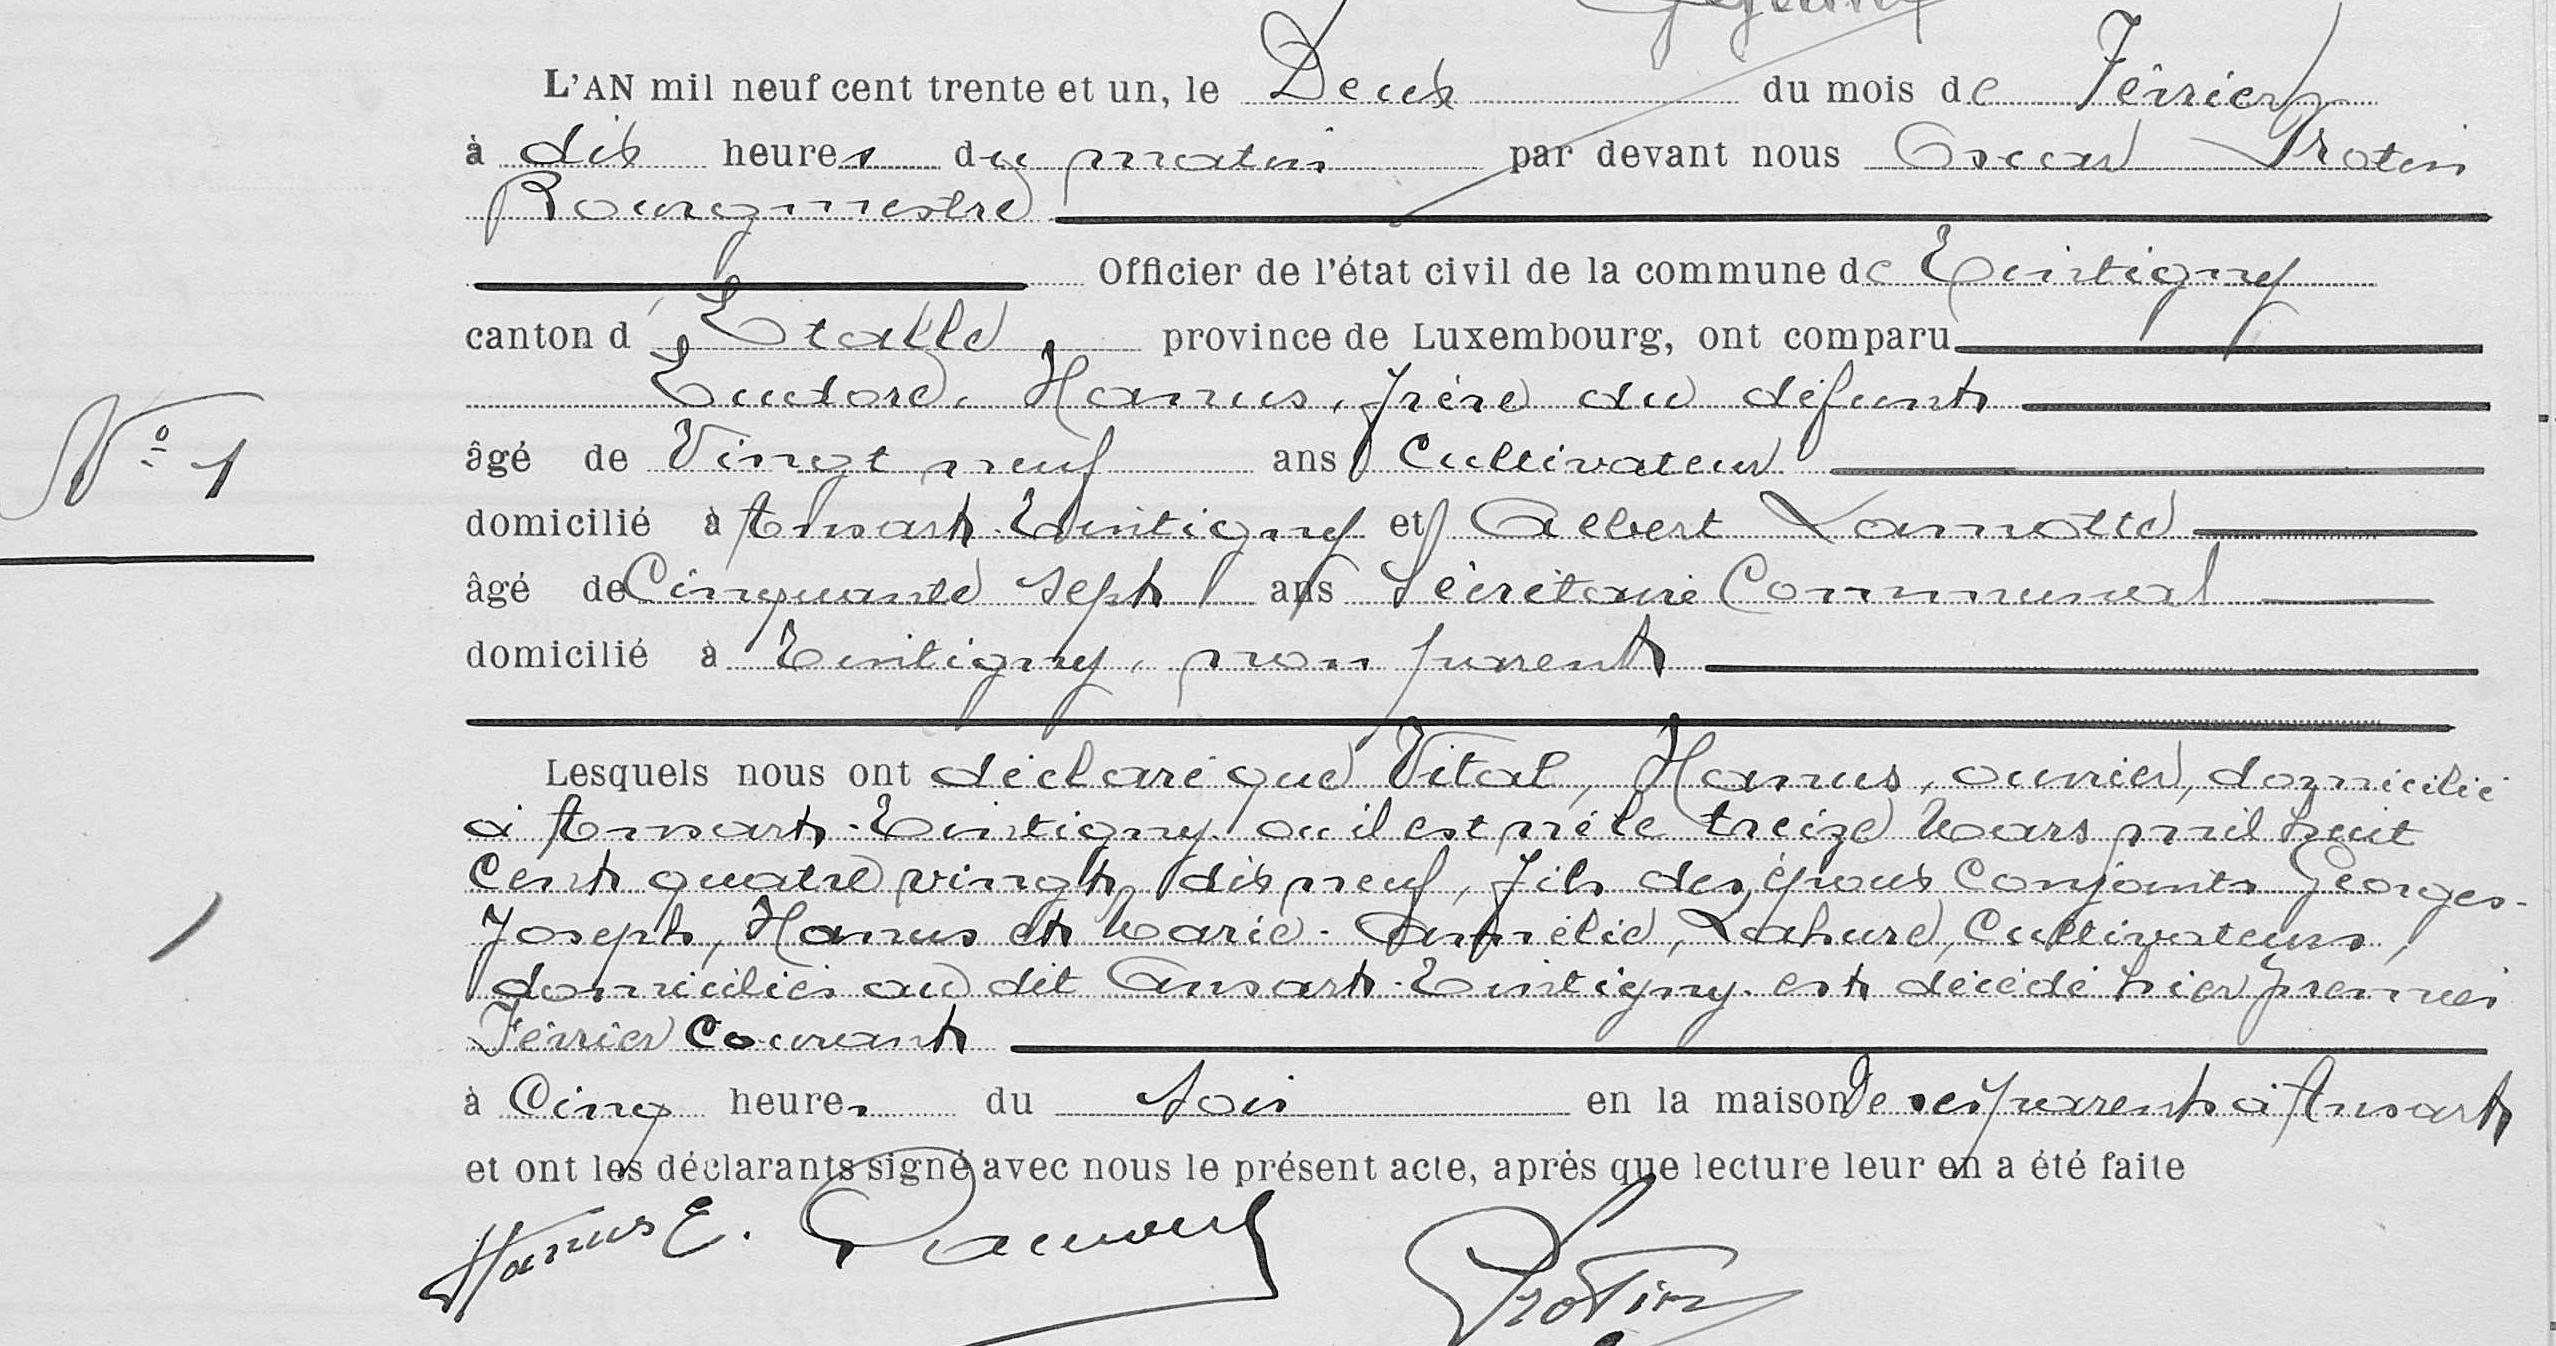 L'AN mil neuf cent trente et un, le Deux du mois de Février
à dix heures du matin par devant nous Oscar Protin
Bourgmestre
Officier de l'état civil de la commune de Tintigny
canton d'Etalle province de Luxembourg, ont comparu
Eudore, Hanus, frère du défunt
N° 1
âgé de Vingt neuf ans Cultivateur
domicilié à Ansart-Tintigny et Albert Lamotte
âgé de Cinquante sept ans Sécrétaire Communal
domicilié à Tintigny, non parent
Lesquels nous ont déclaré que Vital, Hanus, ouvrier, domicilié
à Ansart-Tintigny où il est né le treize Mars mil huit
Cent quatre vingt dix neuf, fils des époux conjoints Georges-
Joseph, Hanus et Marie-Amélie, Lahure, Cultivateurs,
domiciliés au dit Ansart-Tintigny est décédé hier premier
Février Courant
à Cinq heures du soir en la maison de ses parents à Ansart
et ont les déclarants signé avec nous le présent acte, après que lecture leur en a été faite
Hanus E.
Protin